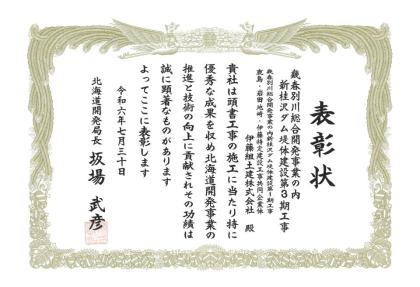 表彰状
幾春別川総合開発事業の内
新桂沢ダム堤体建設第3期工事
幾春別川総合開発事業の内新桂沢ダム堤体建設第1期工事
鹿島・岩田地崎・伊藤特定建設工事共同企業体
伊藤組土建株式会社 殿
貴社は頭書工事の施工に当たり特に
優秀な成果を収め北海道開発事業の
推進と技術の向上に貢献されその功績は
誠に顕著なものがあります
よってここに表彰します
令和六年七月三十日
北海道開発局長 坂場 武彦